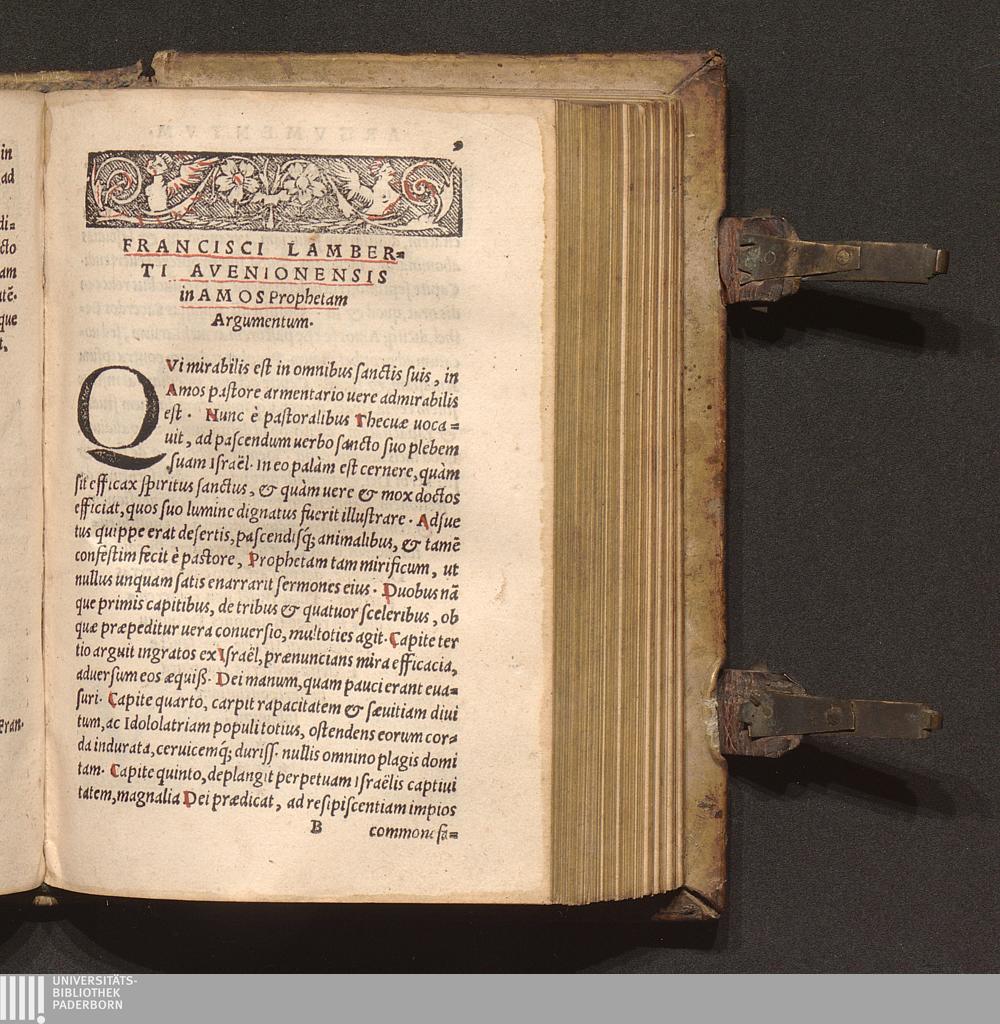 in
ad
di=
cto
am
tē.
que
t.
Fran-
9
FRANCISCI LAMBER=
TI AVENIONENSIS
in AMOS Prophetam
Argumentum.
QVi mirabilis est in omnibus sanctis suis, in
Amos pastore armentario uere admirabilis
est. Nunc è pastoralibus Thecuæ uoca=
uit, ad pascendum uerbo sancto suo plebem
suam Israël. in eo palàm est cernere, quàm
sit efficax spiritus sanctus, & quàm uere & mox doctos
efficiat, quos suo lumine dignatus fuerit illustrare. Adsue
tus quippe erat desertis, pascendisq; animalibus, & tamē
confestim fecit è pastore, Prophetam tam mirificum, ut
nullus unquam satis enarrarit sermones eius. Duobus nā
que primis capitibus, de tribus & quatuor sceleribus, ob
quæ præpeditur uera conuersio, multoties agit. Capite ter
tio arguit ingratos ex Israël, prænuncians mira efficacia,
aduersum eos æquiss. Dei manum, quam pauci erant eua=
suri. Capite quarto, carpit rapacitatem & sæuitiam diui
tum, ac Idololatriam populi totius, ostendens eorum cor=
da indurata, ceruicemq; duriss. nullis omnino plagis domi
tam. Capite quinto, deplangit perpetuam Israëlis captiui
tatem, magnalia Dei prædicat, ad resipiscentiam impios
B commonefa=
UNIVERSITÄTS-
BIBLIOTHEK
PADERBORN